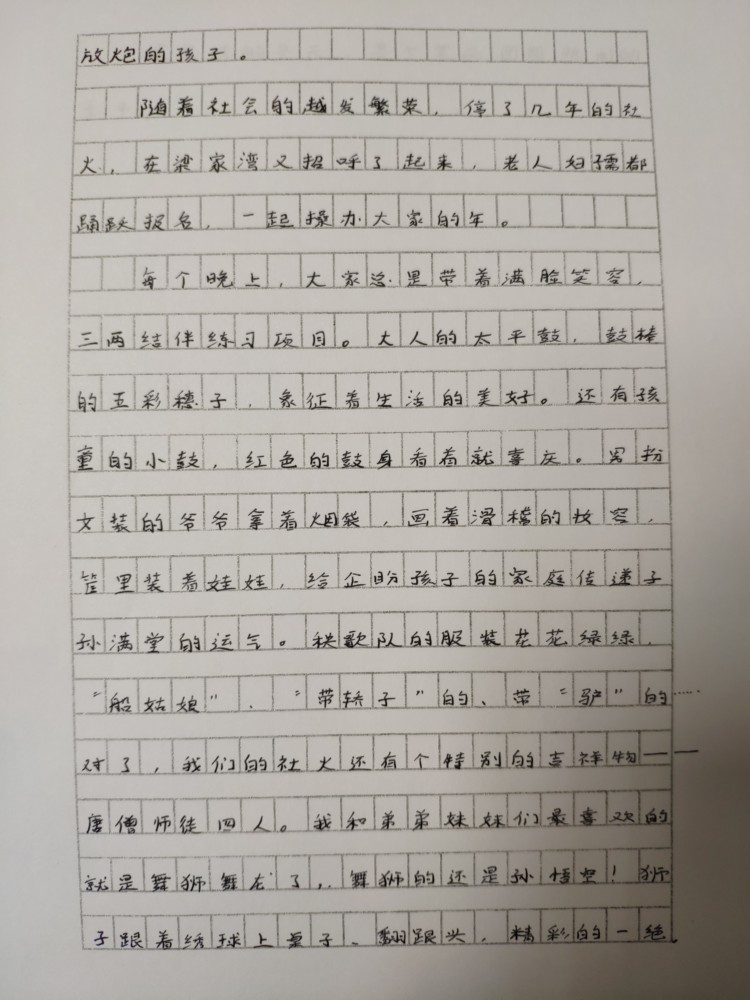 放炮的孩子。
随着社会的越发繁荣，停了几年的社
火，在梁家湾又招呼了起来，老人妇孺都
踊跃报名，一起操办大家的年。
每个晚上，大家总是带着满脸笑容，
三两结伴练习项目。大人的太平鼓，鼓棒
的五彩穗子，象征着生活的美好。还有孩
童的小鼓，红色的鼓身看着就喜庆。男扮
女装的爷爷拿着烟袋，画着滑稽的妆容，
筐里装着娃娃，给企盼孩子的家庭传递子
孙满堂的运气。秧歌队的服装花花绿绿，
“船姑娘”、“带轿子”的、带“驴”的……
对了，我们的社火还有个特别的吉祥物——
唐僧师徒四人。我和弟弟妹妹们最喜欢的
就是舞狮舞龙了，，舞狮的还是孙悟空！狮
子跟着绣球上桌子、翻跟头，精彩的一绝。